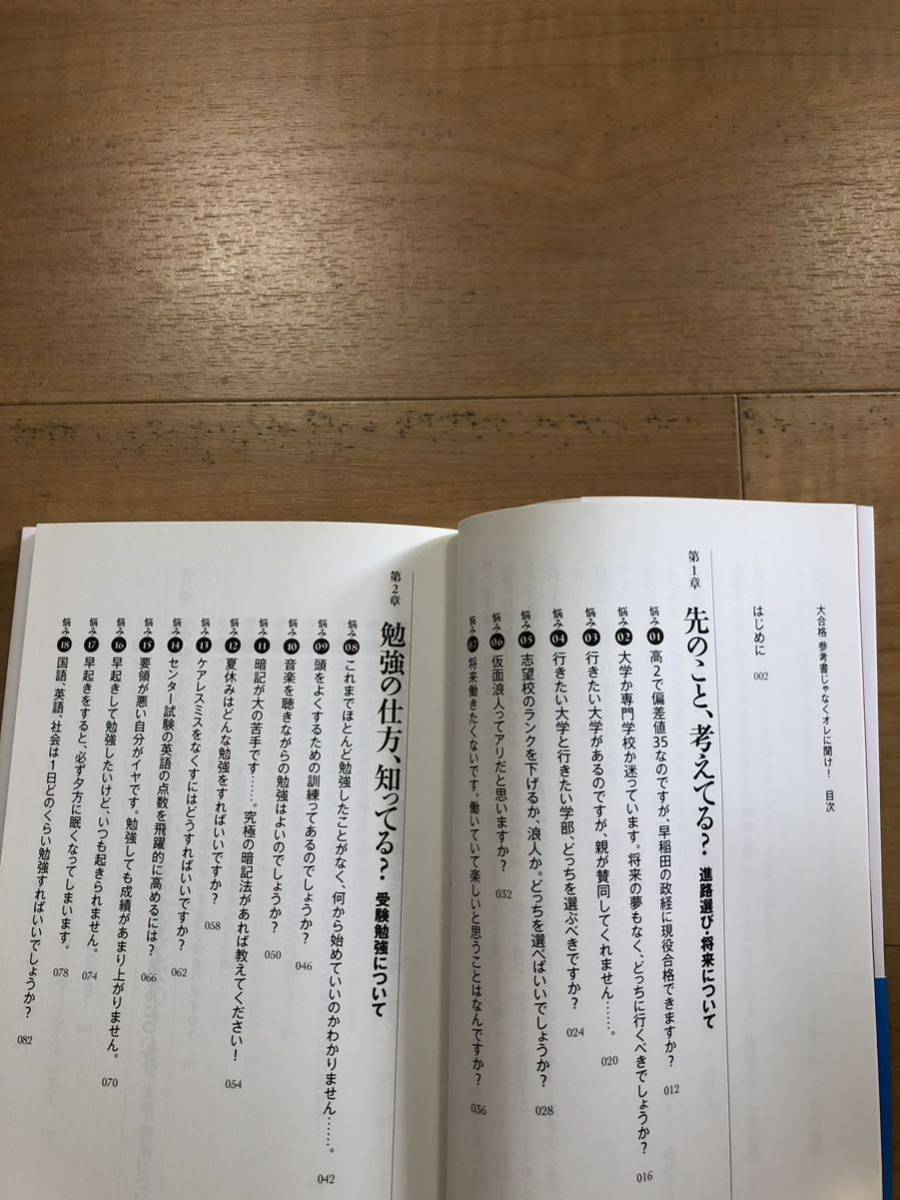 大合格 参考書じゃなくオレに聞け! 目次
はじめに 002
第1章 先のこと、考えてる? 進路選び・将来について
悩み01 高2で偏差値35なのですが、早稲田の政経に現役合格できますか? 012
悩み02 大学か専門学校か迷っています。将来の夢もなく、どっちに行くべきでしょうか? 016
悩み03 行きたい大学があるのですが、親が賛同してくれません……。 020
悩み04 行きたい大学と行きたい学部、どっちを選ぶべきですか? 024
悩み05 志望校のランクを下げるか、浪人か。どっちを選べばいいでしょうか? 028
悩み06 仮面浪人ってアリだと思いますか? 032
悩み07 将来働きたくないです。働いていて楽しいと思うことはなんですか? 036
第2章 勉強の仕方、知ってる? 受験勉強について
悩み08 これまでほとんど勉強したことがなく、何から始めていいのかわかりません……。 042
悩み09 頭をよくするための訓練ってあるのでしょうか? 046
悩み10 音楽を聴きながらの勉強はよいのでしょうか? 050
悩み11 暗記が大の苦手です……。究極の暗記法があれば教えてください! 054
悩み12 夏休みはどんな勉強をすればいいですか? 058
悩み13 ケアレスミスをなくすにはどうすればいいですか? 062
悩み14 センター試験の英語の点数を飛躍的に高めるには? 066
悩み15 要領が悪い自分がイヤです。勉強しても成績があまり上がりません。 070
悩み16 早起きして勉強したいけど、いつも起きられません。 074
悩み17 早起きをすると、必ず夕方に眠くなってしまいます。 078
悩み18 国語、英語、社会は1日どのくらい勉強すればいいでしょうか? 082